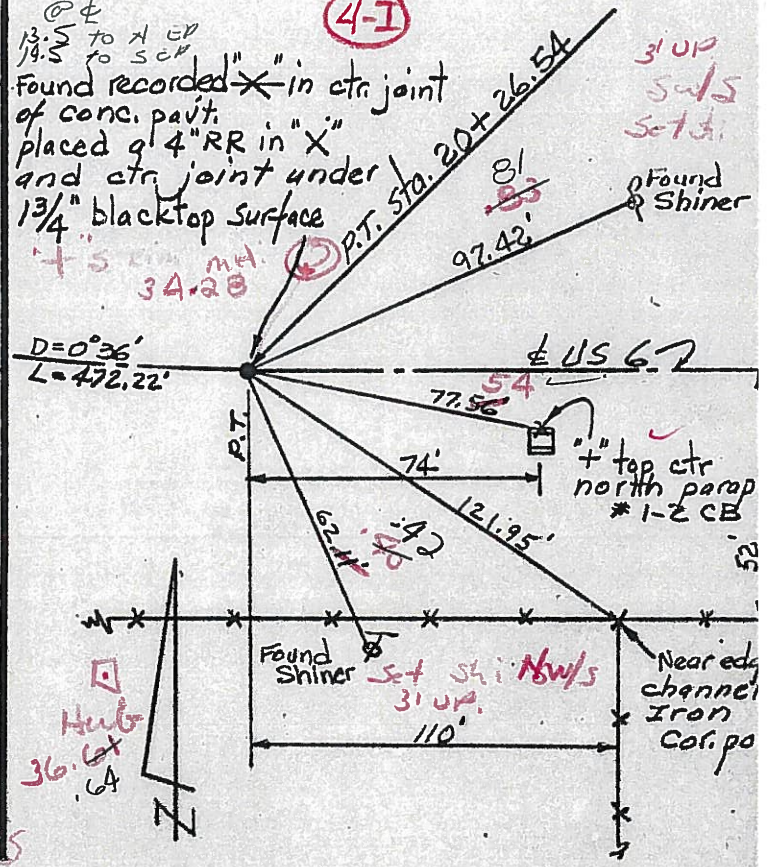 @ ℄
13.5 to N EP
14.5 to S EP
4-I
Found recorded "X" in ctr. joint
of conc. pav't.
placed a 4" RR in "X"
and ctr. joint under
1 3/4" blacktop surface
"+" S rim M.H.
34.28
P.T. Sta. 20+26.54
3' UP
SW/S
Set shi
81
.83
97.42'
Found
Shiner
D=0°36'
L=472.22'
℄ US 6
54
77.56'
P.T.
74'
"+" top ctr
north parap
# 1-2 CB
62.11'
.50
.42
121.95'
52'
Found
Shiner
Set shi NW/S
3' UP.
Near edg
channel
Iron
Cor. po
Hub
36.61
.64
110'
N
5